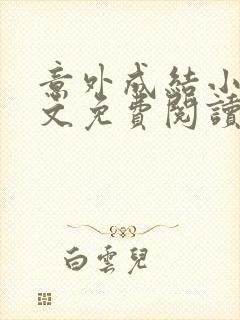 意外成結小
文免費閱讀
白雲兒